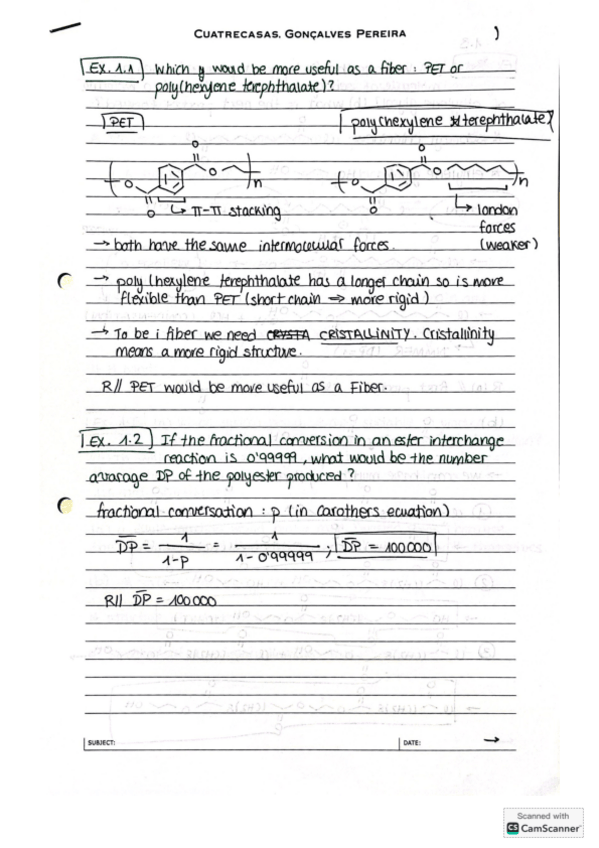 CUATRECASAS. GONÇALVES PEREIRA
Ex. 1.1 Which y would be more useful as a fiber : PET or
poly(hexylene terephthalate)?
PET
poly(hexylene terephthalate)
O
O
O
O
n
n
O
O
O
O
π-π stacking
london
forces
(weaker)
→ both have the same intermolecular forces.
→ poly(hexylene terephthalate has a longer chain so is more
flexible than PET (short chain ⇒ more rigid)
→ To be i fiber we need CRYSTA CRISTALLINITY. Cristallinity
means a more rigid structure.
R// PET would be more useful as a Fiber.
Ex. 1.2 If the fractional conversion in an ester interchange
reaction is 0'99999, what would be the number
avarage DP of the polyester produced?
fractional conversation : p (in Carothers ecuation)
DP = 1/1-p = 1/1-0'99999 ; DP = 100000
R// DP = 100000
SUBJECT: DATE: →
Scanned with
CS CamScanner